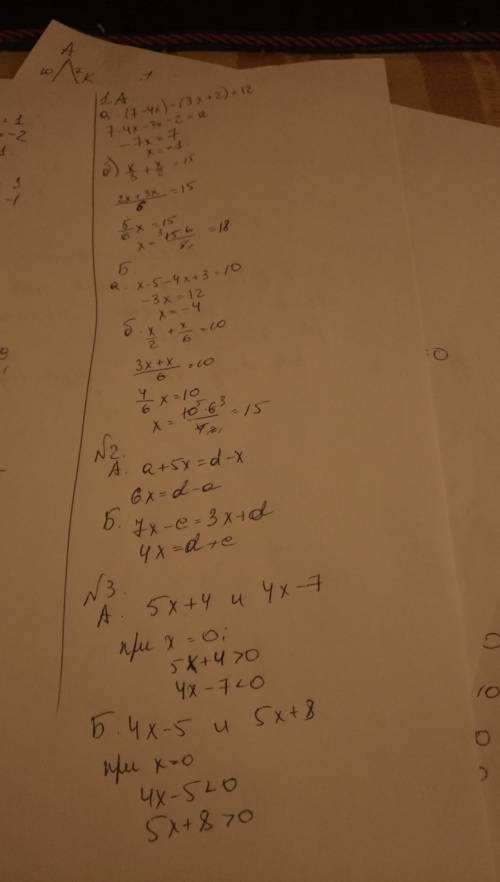 A
10
К
= 1
= -2
3
-1
1. А
а. (7-4x)-(3x+2)=12
7-4x-3x-2=12
-7x=7
x=-1
б) x/3 + x/2 = 15
2x+3x/6 = 15
5/6 x = 15
x = 15·6/5 = 18
Б
а. x-5-4x+3=10
-3x=12
x=-4
б. x/2 + x/6 = 10
3x+x/6 = 10
4/6 x = 10
x = 10·6/4 = 15
№2.
А. a+5x=d-x
6x=d-a
Б. 7x-c=3x+d
4x=d+c
№3.
А. 5x+4 и 4x-7
при x=0;
5x+4>0
4x-7<0
Б. 4x-5 и 5x+8
при x=0
4x-5<0
5x+8>0
=0
0
10
0